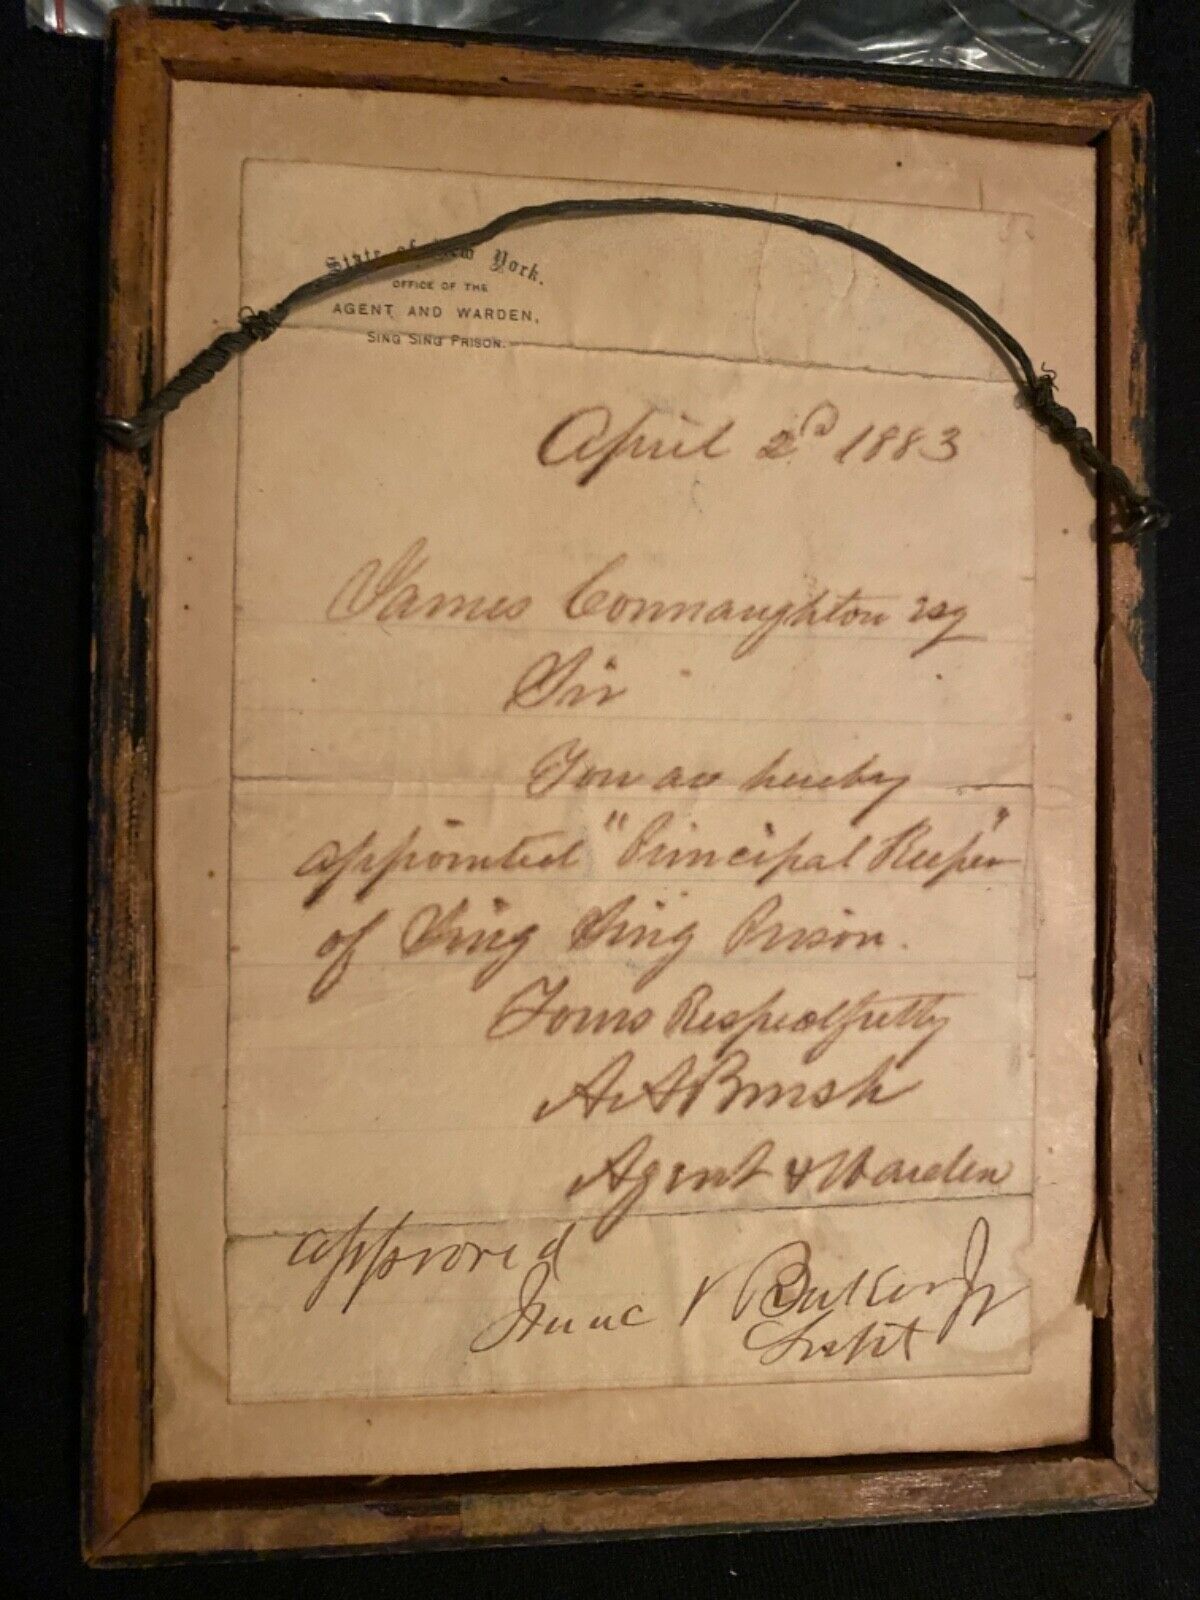 State of New York.
OFFICE OF THE
AGENT AND WARDEN,
SING SING PRISON.
April 2d 1883
James Connaughton esq
Sir
You are hereby
appointed "Principal Keeper"
of Sing Sing Prison.
Yours Respectfully
A A Brush
Agent & Warden
approved
Isaac V Baker Jr
Supt